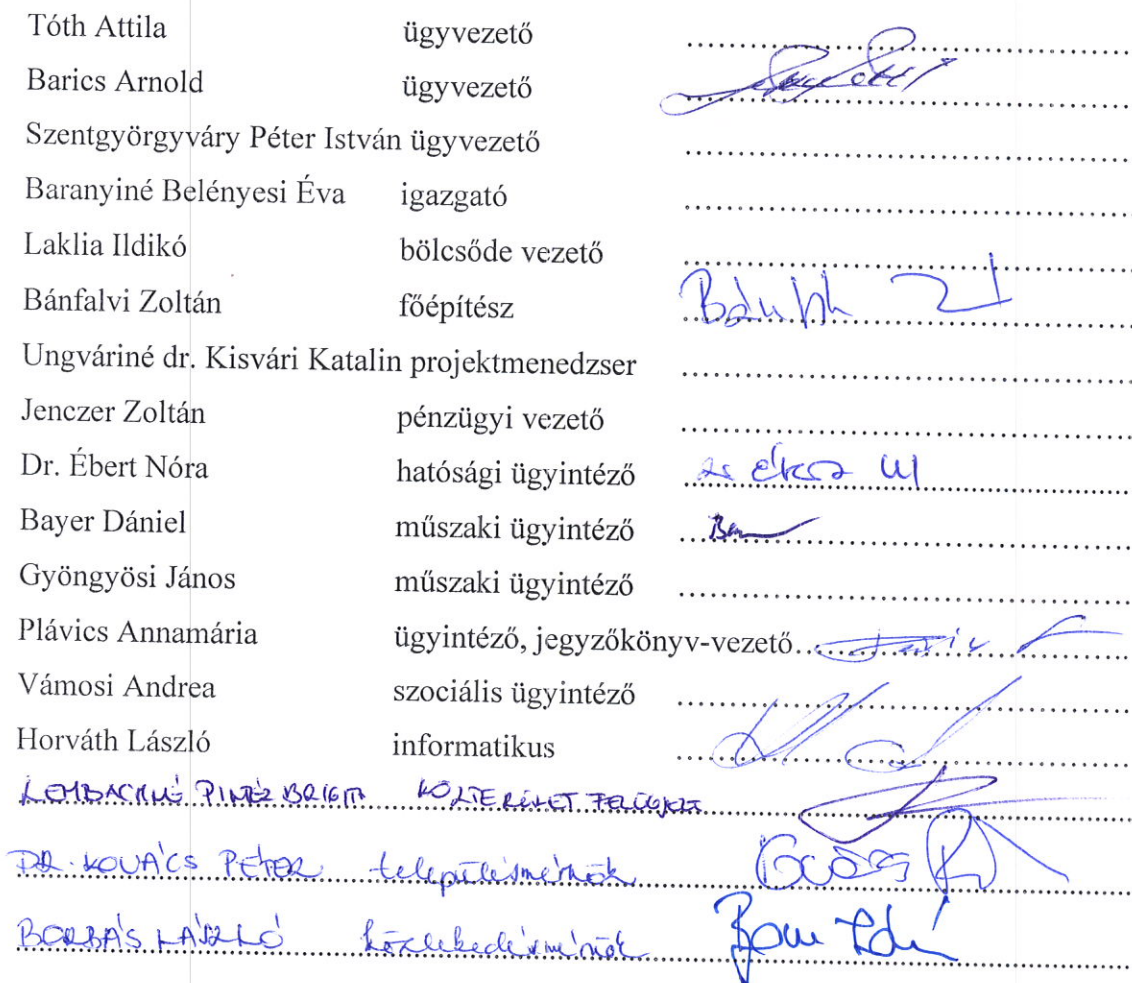 Tóth Attila ügyvezető
Barics Arnold ügyvezető
Szentgyörgyváry Péter István ügyvezető
Baranyiné Belényesi Éva igazgató
Laklia Ildikó bölcsőde vezető
Bánfalvi Zoltán főépítész
Ungváriné dr. Kisvári Katalin projektmenedzser
Jenczer Zoltán pénzügyi vezető
Dr. Ébert Nóra hatósági ügyintéző
Bayer Dániel műszaki ügyintéző
Gyöngyösi János műszaki ügyintéző
Plávics Annamária ügyintéző, jegyzőkönyv-vezető
Vámosi Andrea szociális ügyintéző
Horváth László informatikus
BRIGITTA KÖZTERÜLET
DR. KOVÁCS PÉTER településmérnök
BORBÁS LÁSZLÓ közlekedésmérnök